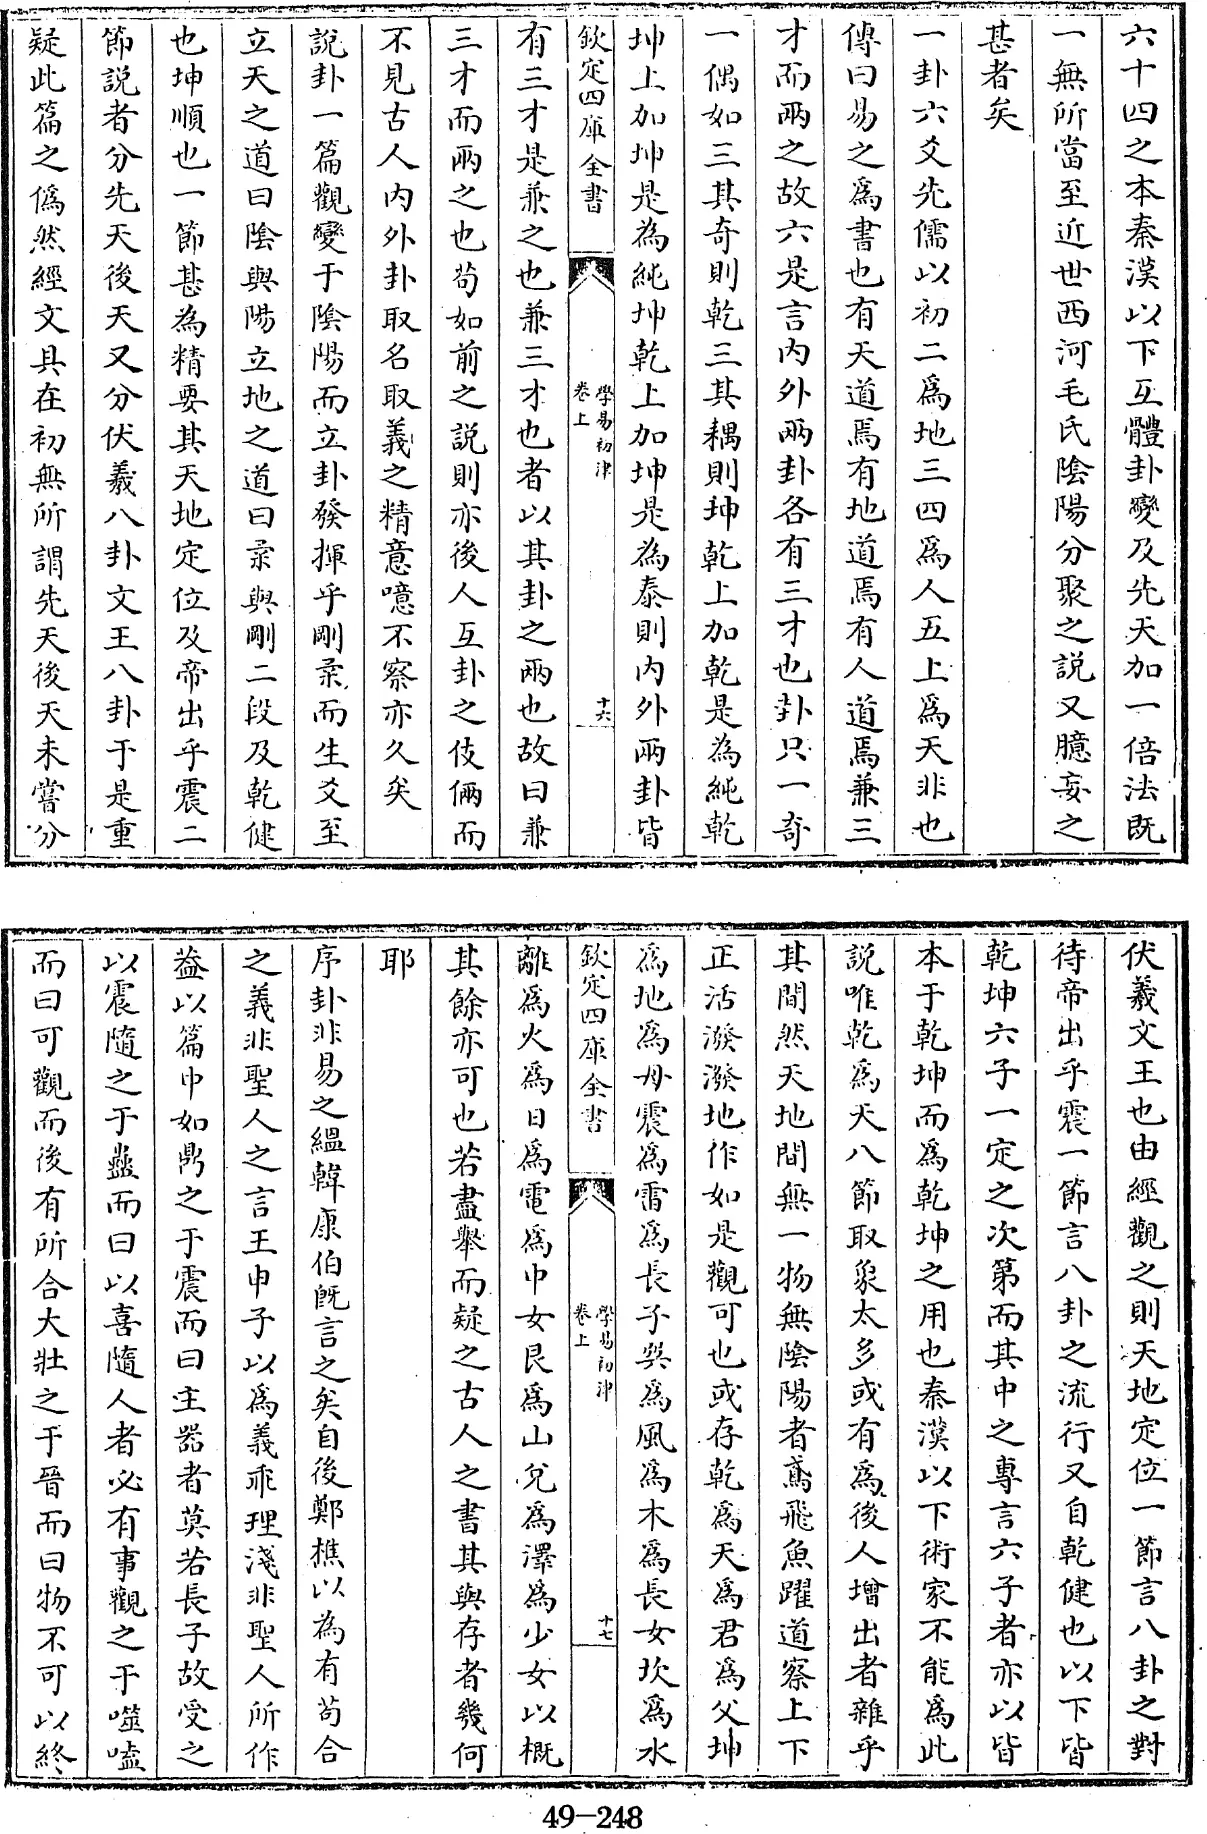 六十四之本秦漢以下互體卦變及先天加一倍法既
一無所當至近世西河毛氏陰陽分聚之説又臆妄之
甚者矣
一卦六爻先儒以初二為地三四為人五上為天非也
傳曰易之為書也有天道焉有地道焉有人道焉兼三
才而兩之故六是言内外兩卦各有三才也卦只一奇
一偶如三其奇則乾三其耦則坤乾上加乾是為純乾
坤上加坤是為純坤乾上加坤是為泰則内外兩卦皆
欽定四庫全書
學易初津
卷上
十六
有三才是兼之也兼三才也者以其卦之兩也故曰兼
三才而兩之也苟如前之説則亦後人互卦之伎倆而
不見古人内外卦取名取義之精意噫不察亦久矣
説卦一篇觀變于陰陽而立卦發揮乎剛柔而生爻至
立天之道曰陰與陽立地之道曰柔與剛二段及乾健
也坤順也一節甚為精要其天地定位及帝出乎震二
節説者分先天後天又分伏羲八卦文王八卦于是重
疑此篇之偽然經文具在初無所謂先天後天未嘗分
伏羲文王也由經觀之則天地定位一節言八卦之對
待帝出乎震一節言八卦之流行又自乾健也以下皆
乾坤六子一定之次第而其中之專言六子者亦以皆
本于乾坤而為乾坤之用也秦漢以下術家不能為此
説唯乾為天八節取象太多或有為後人增出者雜乎
其間然天地間無一物無陰陽者鳶飛魚躍道察上下
正活潑潑地作如是觀可也或存乾為天為君為父坤
為地為母震為雷為長子巽為風為木為長女坎為水
欽定四庫全書
學易初津
卷上
十七
離為火為日為電為中女艮為山兌為澤為少女以概
其餘亦可也若盡舉而疑之古人之書其與存者幾何
耶
序卦非易之緼韓康伯既言之矣自後鄭樵以為有苟合
之義非聖人之言王申子以為義乖理淺非聖人所作
葢以篇中如鼎之于震而曰主器者莫若長子故受之
以震隨之于蠱而曰以喜隨人者必有事觀之于噬嗑
而曰可觀而後有所合大壯之于晉而曰物不可以終
49-248